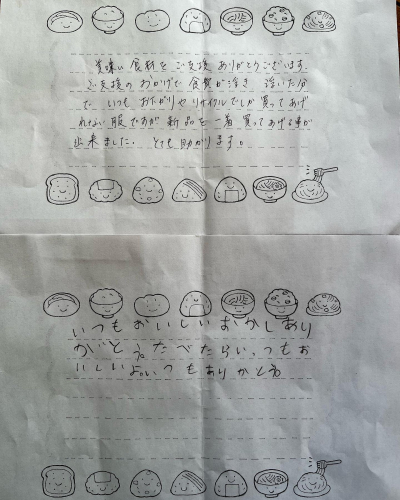 美味しい食材をご支援ありがとうございます。
ご支援のおかげで食費が浮き 浮いた分
で、いつもおさがりやリサイクルでしか買ってあげ
れない服ですが新品を一着買ってあげる事が
出来ました。とても助かります。
いつもおいしいおかしあり
がとう。たべたらい、つもお
いしいよ。いつもありがとう